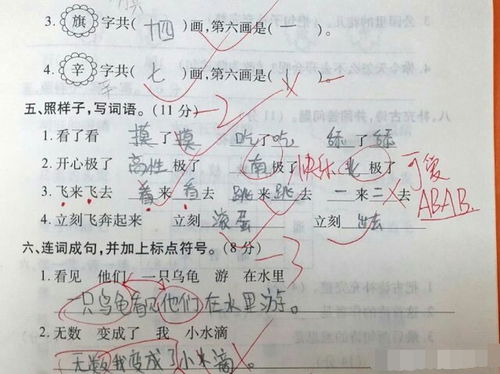 3. 旗 字共(十四)画,第六画是(一)。
4. 辛 字共(七)画,第六画是( )。
五、照样子,写词语。(11分) -2
1. 看了看 摸了摸 吃了吃
2. 开心极了 高性极了 南极了 快乐 北极了
3. 飞来飞去 着来着去 跳来跳去 一来二去 可爱 ABAB.
4. 立刻飞奔起来 立刻滚蛋 立刻出去
六、连词成句,并加上标点符号。(8分) -3
1. 看见 他们 一只乌龟 游 在水里
一只乌龟看见他们在水里游。
2. 无数 变成了 我 小水滴
无数我变成了小水滴